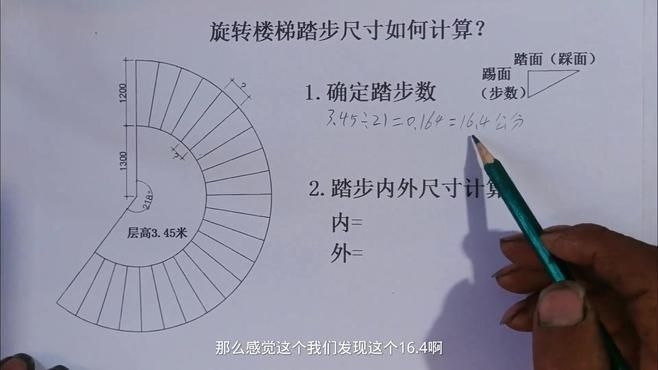 旋转楼梯踏步尺寸如何计算？
踏面（踩面）
踢面
（步数）
1.确定踏步数
3.45÷21=0.164=16.4公分
1200
?
1300
?
218°
层高3.45米
2.踏步内外尺寸计算
内=
外=
那么感觉这个我们发现这个16.4啊